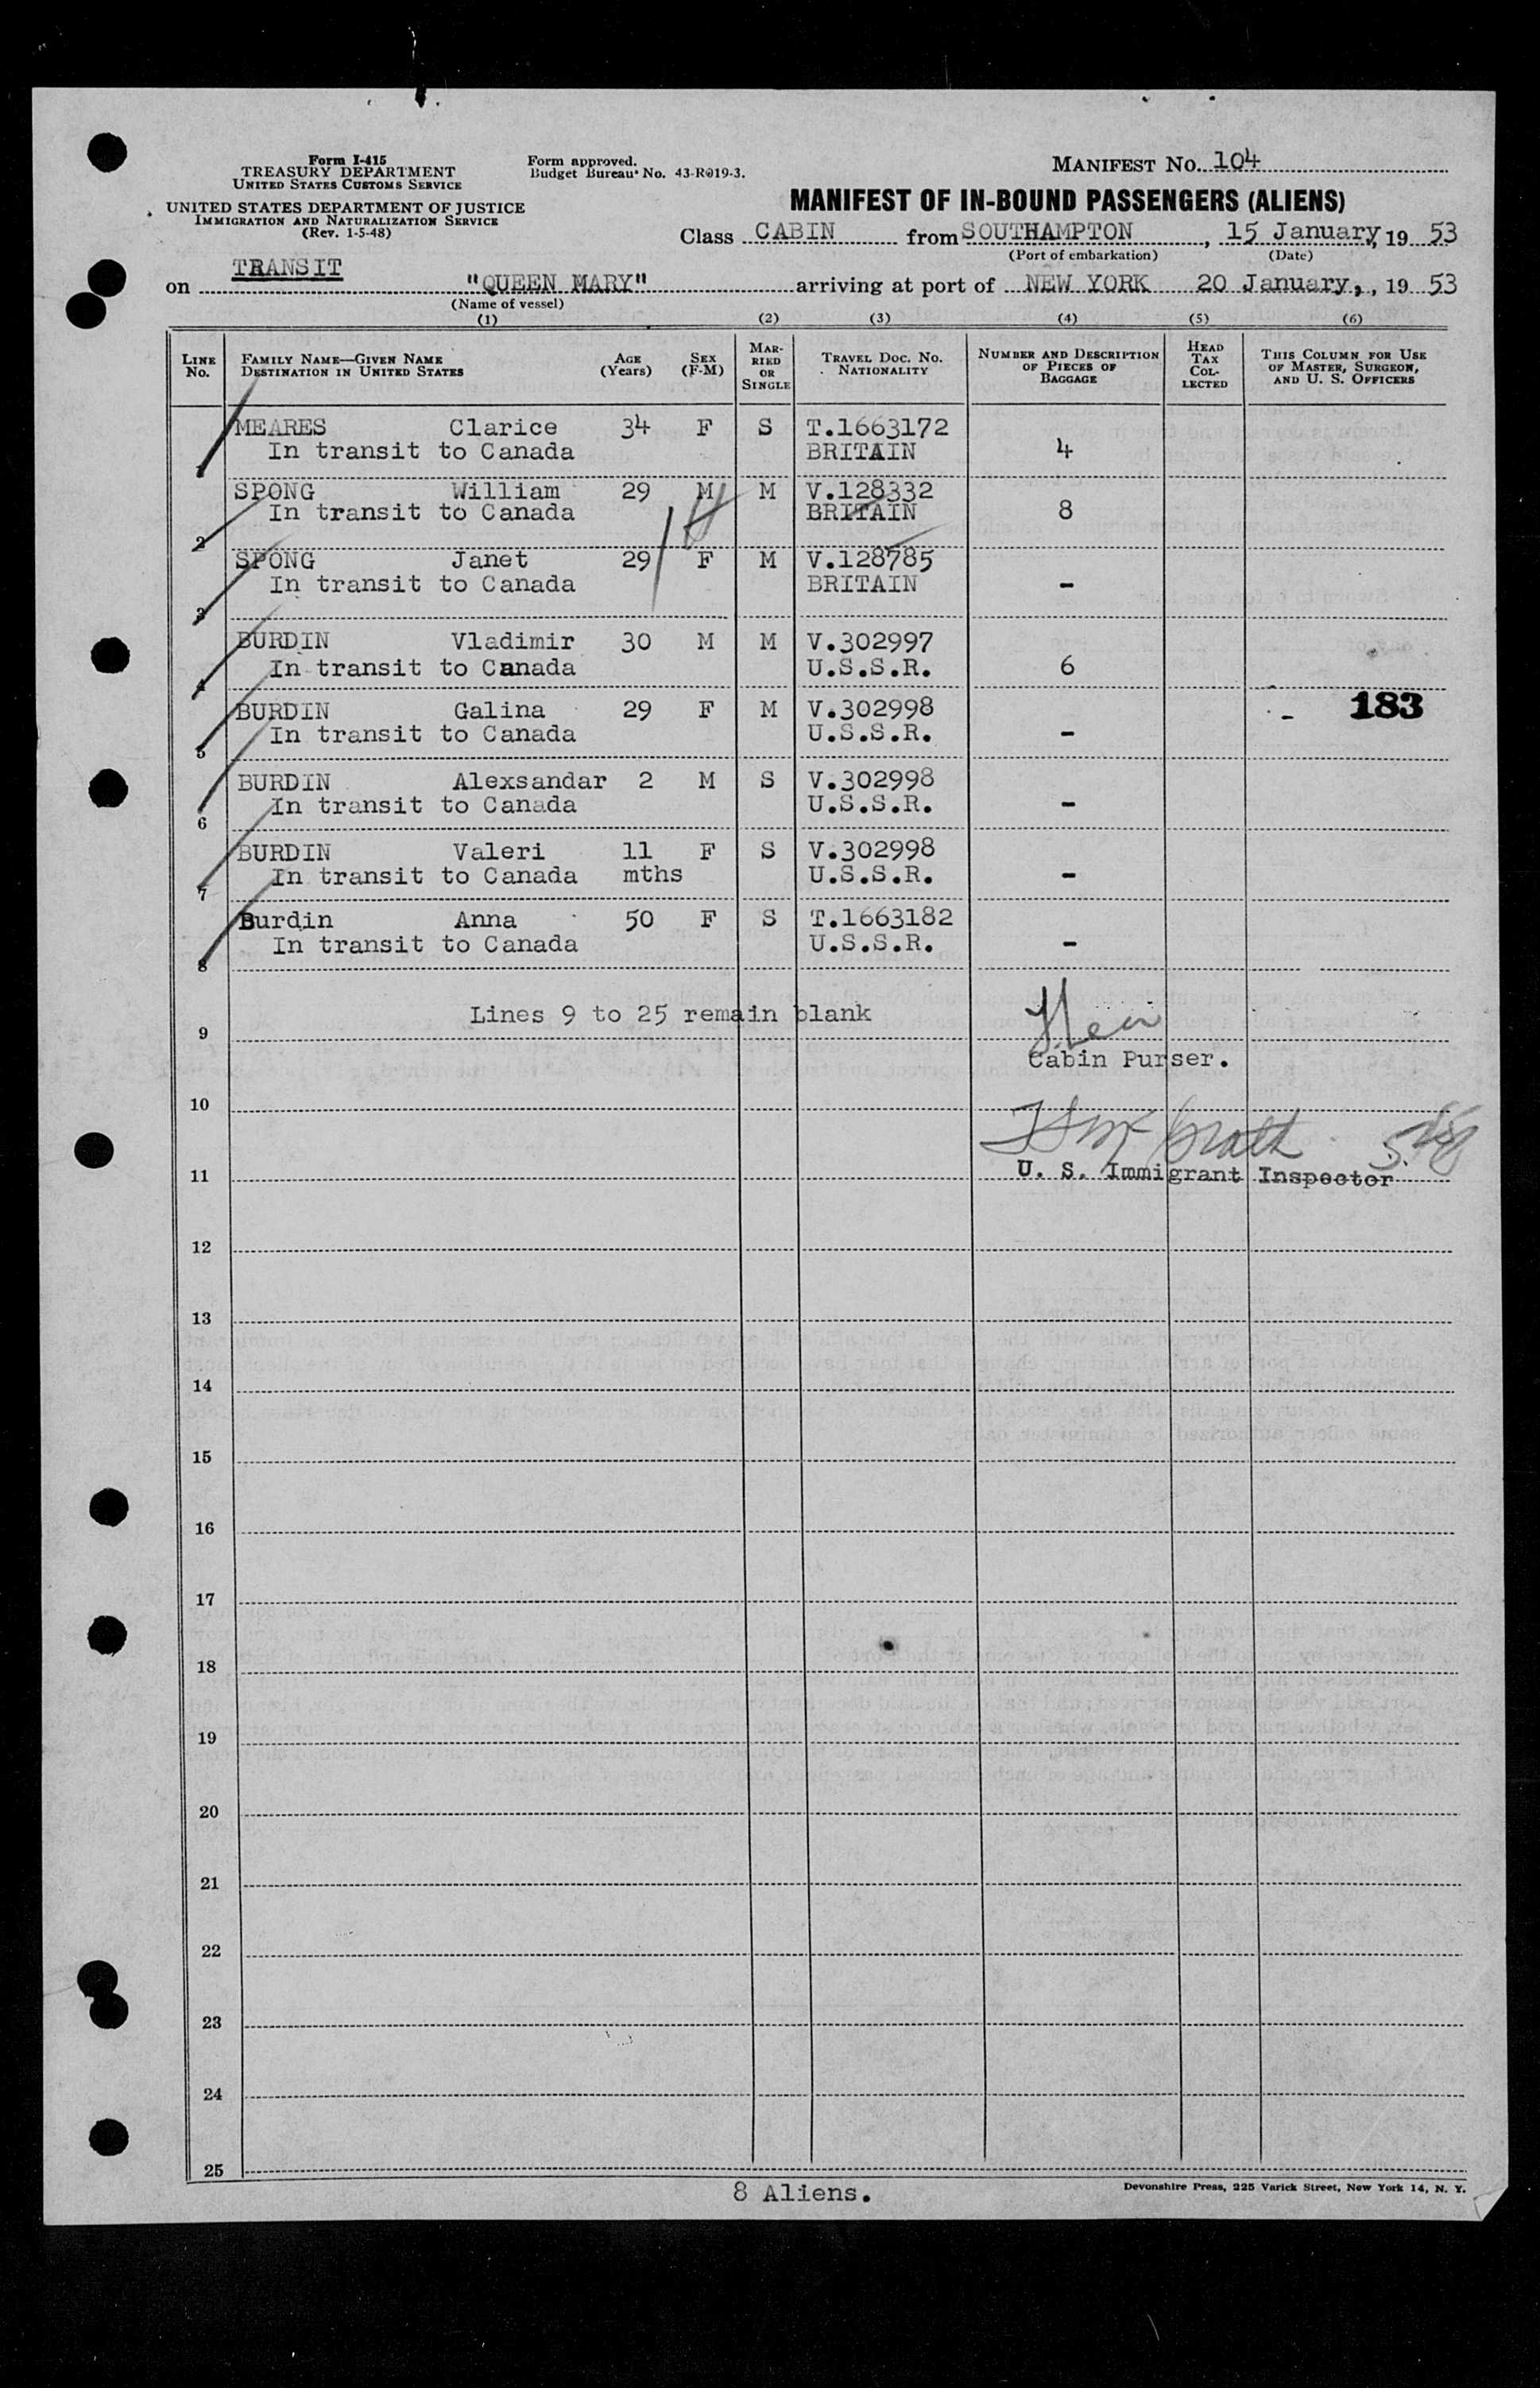 Form I-415
TREASURY DEPARTMENT
UNITED STATES CUSTOMS SERVICE
UNITED STATES DEPARTMENT OF JUSTICE
IMMIGRATION AND NATURALIZATION SERVICE
(Rev. 1-5-48)
Form approved.
Budget Bureau No. 43-R019-3.
MANIFEST NO. 104
MANIFEST OF IN-BOUND PASSENGERS (ALIENS)
Class CABIN from SOUTHAMPTON, 15 January, 19 53
(Port of embarkation) (Date)
TRANSIT
on "QUEEN MARY" arriving at port of NEW YORK 20 January, , 19 53
(Name of vessel)
(1) (2) (3) (4) (5) (6)
LINE NO. FAMILY NAME—GIVEN NAME DESTINATION IN UNITED STATES AGE (Years) SEX (F-M) MARRIED OR SINGLE TRAVEL DOC. NO. NATIONALITY NUMBER AND DESCRIPTION OF PIECES OF BAGGAGE HEAD TAX COLLECTED THIS COLUMN FOR USE OF MASTER, SURGEON, AND U. S. OFFICERS
MEARES Clarice 34 F S T.1663172
1 In transit to Canada BRITAIN 4
SPONG William 29 M M V.128332
2 In transit to Canada BRITAIN 8
SPONG Janet 29 F M V.128785
3 In transit to Canada BRITAIN -
BURDIN Vladimir 30 M M V.302997
4 In transit to Canada U.S.S.R. 6
BURDIN Galina 29 F M V.302998 - 183
5 In transit to Canada U.S.S.R. -
BURDIN Alexsandar 2 M S V.302998
6 In transit to Canada U.S.S.R. -
BURDIN Valeri 11 F S V.302998
7 In transit to Canada mths U.S.S.R. -
Burdin Anna 50 F S T.1663182
8 In transit to Canada U.S.S.R. -
9 Lines 9 to 25 remain blank
Cabin Purser.
10
11 U. S. Immigrant Inspector
12
13
14
15
16
17
18
19
20
21
22
23
24
25
8 Aliens.
Devonshire Press, 225 Varick Street, New York 14, N. Y.